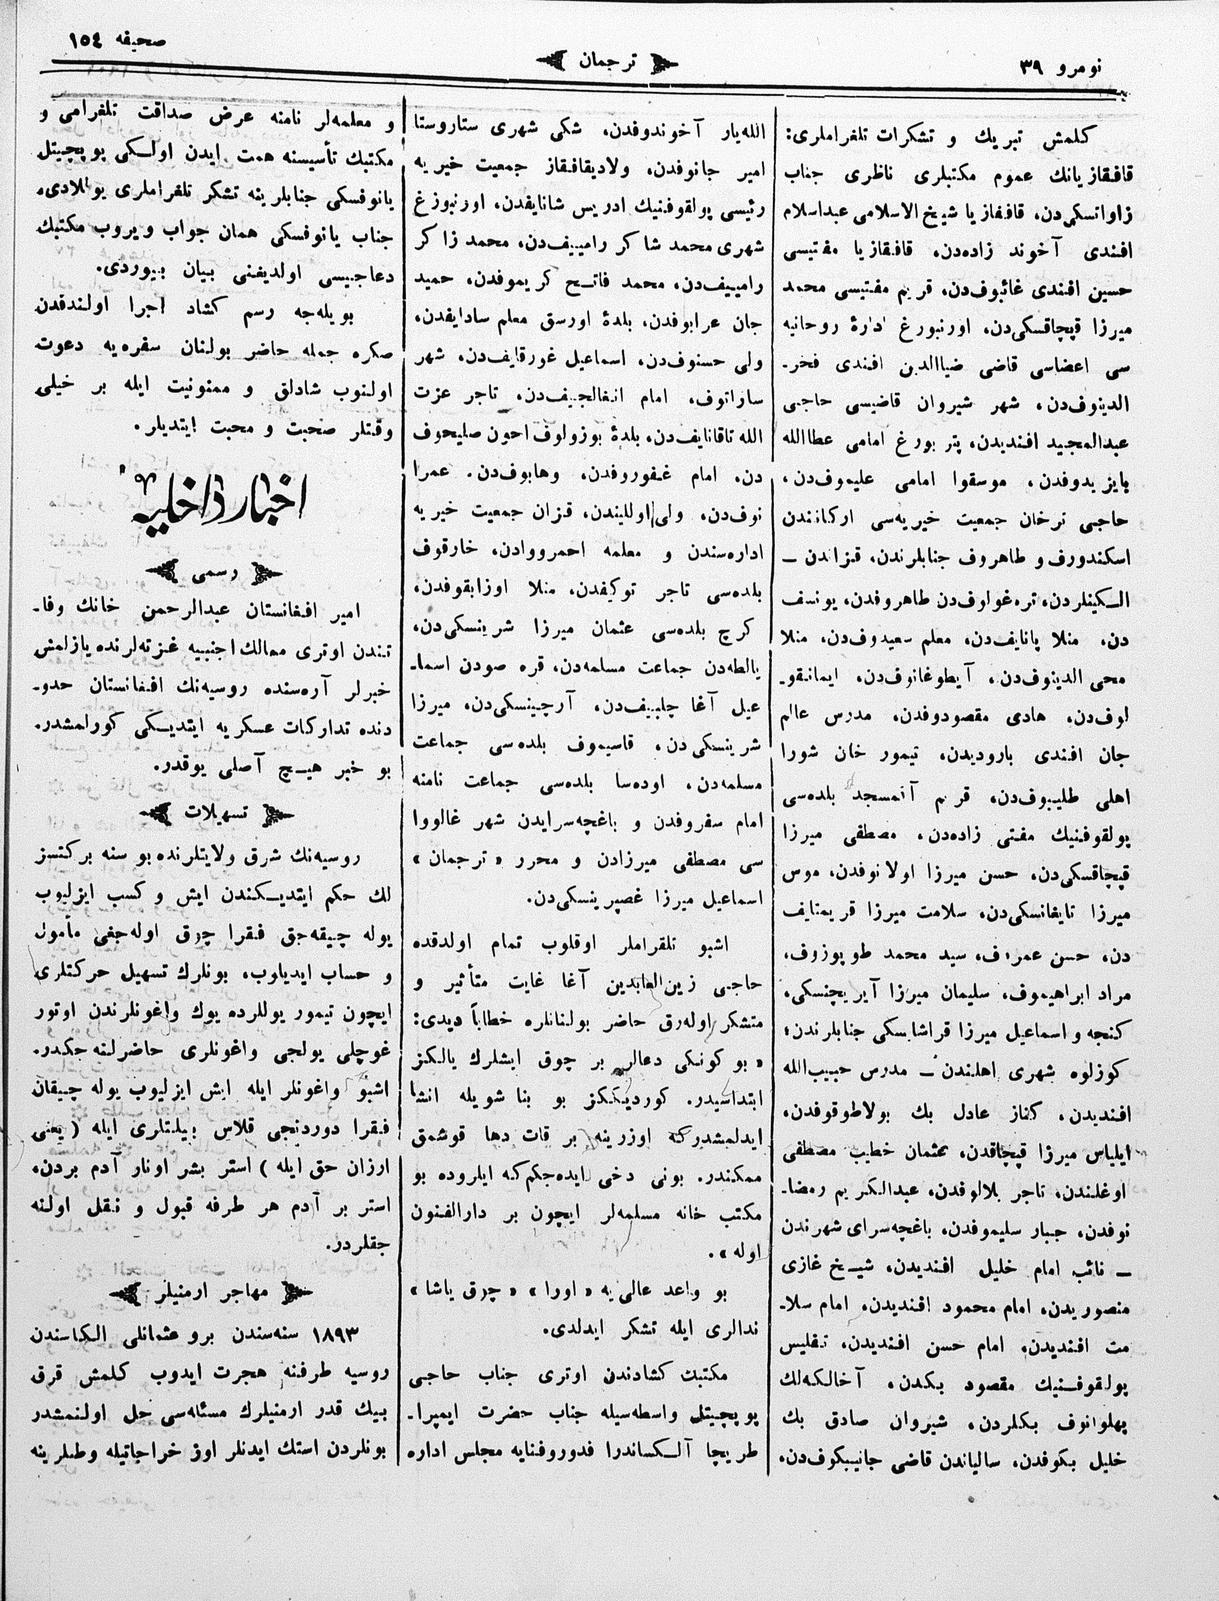 نومرو ٣٩
ترجمان
صحيفه ١٥٤
كلمش تبريك و تشكرات تلغراملرى:
قافقازيانك عموم مكتبلرى ناظرى جناب
زاوادسكى‌دن، قافقازيا شيخ الاسلامى عبدالسلام
افندى آخوند زاده‌دن، قافقازيا مفتيسى
حسين افندى غائبوف‌دن، قريم مفتيسى محمد
ميرزا قپچاقسكى‌دن، اورنبورغ ادارۀ روحانيه
سى اعضاسى قاضى ضياالدين افندى فخر-
الدينوف‌دن، شهر شيروان قاضيسى حاجى
عبدالمجيد افنديدن، پتربورغ امامى عطاالله
بايزيدوفدن، موسقوا امامى عليموف‌دن،
حاجى ترخان جمعيت خيريه‌سى اركانندن
اسكندورف و طاهروف جنابلرندن، قزاندن –
الكينلردن، تره‌غولوف‌دن طاهروفدن، يونسف
دن، منلا پانايف‌دن، معلم سعيدوف‌دن، منلا
محى الدينوف‌دن، آيطوغانوف‌دن، ايمانقو-
لوف‌دن، هادى مقصودوفدن، مدرس عالم
جان افندى باروديدن، تيمور خان شورا
اهلى طليبوف‌دن، قريم آقمسجد بلده‌سى
پولقوفنيك مفتى زاده‌دن، مصطفى ميرزا
قپچاقسكى‌دن، حسن ميرزا اولانوفدن، موسى
ميرزا تايغانسكى‌دن، سلامت ميرزا قريمتايف
دن، حسن عمروف، سيد محمد طوپوزوف،
مراد ابراهيموف، سليمان ميرزا آيريچنسكى،
كنجه و اسماعيل ميرزا قراشايسكى جنابلرندن؛
كوزلوه شهرى اهلندن – مدرس حبيب‌الله
افنديدن، كناز عادل بك بولاطوقوفدن،
ايلياس ميرزا قپچاقدن، عثمان خطيب مصطفى
اوغلندن، تاجر بلالوفدن، عبدالكريم رمضا-
نوفدن، جبار سليموفدن، باغچه‌سراى شهرندن
– نائب امام خليل افنديدن، شيخ غازى
منصوريدن، امام محمود افنديدن، امام سلا-
مت افنديدن، امام حسن افنديدن، تفليس
پولقوفنيك مقصود بكدن، آخالكه‌لك
پهلوانوف بكلردن، شيروان صادق بك
خليل بكوفدن، سالياندن قاضى جانيبكوف‌دن،
الله‌يار آخوندوفدن، شكى شهرى ستاروستا
امير جانوفدن، ولاديقافقاز جمعيت خيريه
رئيسى پولقوفنيك ادريس شانايفدن، اورنبورغ
شهرى محمد شاكر راميیف‌دن، محمد ذاكر
راميیف‌دن، محمد فاتح كريموفدن، حميد
جان عرابوفدن، بلدۀ اورسق معلم سادايقدن،
ولى حسنوف‌دن، اسماعيل غورقايف‌دن، شهر
ساراتوف، امام انفالجيف‌دن، تاجر عزت
الله تاقانايف‌دن، بلدۀ بوزولوف احون صليحوف
دن، امام غفوروفدن، وهابوف‌دن، عمرا
نوف‌دن، ولى اوللیندن، قزان جمعيت خيريه
اداره‌سندن و معلمه احمرووادن، خارقوف
بلده‌سى تاجر توكيفدن، منلا اوزابقوفدن،
كرچ بلده‌سى عثمان ميرزا شرينسكى‌دن،
يالطه‌دن جماعت مسلمه‌دن، قره صودن اسما-
عيل آغا چلبيف‌دن، آرچينسكى‌دن، ميرزا
شرينسكى‌دن، قاسيموف بلده‌سى جماعت
مسلمه‌دن، اوده‌سا بلده‌سى جماعت نامنه
امام سفروفدن و باغچه‌سرايدن شهر غالووا
سى مصطفى ميرزادن و محرر «ترجمان»
اسماعيل ميرزا غصپرينسكى‌دن.
اشبو تلغراملر اوقلوب تمام اولدقده
حاجى زين‌العابدين آغا غايت متأثير و
متشكر اوله‌رق حاضر بولنانلره خطاباً ديدى:
«بو كونكى دعالر بر چوق ايشلرك يالكز
ابتداسيدر. كورديكنكز بو بنا شويله انشا
ايدلمشدركه اوزرينه بر قات دها قوشمق
ممكندر. بونى دخى ايده‌جكم‌كه ايلروده بو
مكتب خانه مسلمه‌لر ايچون بر دارالفنون
اوله».
بو واعد عاليه «اورا» «چوق ياشا»
ندالرى ايله تشكر ايدلدى.
مكتبك كشادندن اوترى جناب حاجى
پوپچيتل واسطه‌سيله جناب حضرت ايمپرا-
طريچا آلكساندرا فدوروفنايه مجلس اداره
و معلمه‌لر نامنه عرض صداقت تلغرامى و
مكتبك تأسيسنه همت ايدن اولكى پوپچيتل
يانوفسكى جنابلرينه تشكر تلغراملرى يوللادى،
جناب يانوفسكى همان جواب ويروب مكتبك
دعاجيسى اولديغنى بيان بيوردى.
بويله‌جه رسم كشاد اجرا اولندقدن
صكره جمله حاضر بولنان سفره‌يه دعوت
اولنوب شادلق و ممنونيت ايله بر خيلى
وقتلر صحبت و محبت ايتديلر.
اخبار داخليه
رسمى
امير افغانستان عبدالرحمن خانك وفا-
تندن اوترى ممالك اجنبيه غزته‌لرنده يازلمش
خبرلر آره‌سنده روسيه‌نك افغانستان حدو-
دنده تداركات عسكريه ايتديكى كورلمشدر.
بو خبر هيچ آصلى يوقدر.
تسهيلات
روسيه‌نك شرق ولايتلرنده بو سنه بركتسز
لك حكم ايتديكندن ايش و كسب ايزليوب
يوله چيقه‌جق فقرا چوق اوله‌جغى مأمول
و حساب ايديلوب، بونلرك تسهيل حركتلرى
ايچون تيمور يوللرده يوك واغونلرندن اوتور
غوچلى يولجى واغونلرى حاضرلنه‌جكدر.
اشبو واغونلر ايله ايش ايزليوب يوله چيقان
فقرا دوردنجى قلاس بيلتلرى ايله (يعنى
ارزان حق ايله) استر بشر اونار آدم بردن،
استر بر آدم هر طرفه قبول و نقل اولنه
جقلردر.
مهاجر ارمنيلر
١٨٩٣ سنه‌سندن برو عثمانلى الكاسندن
روسيه طرفنه هجرت ايدوب كلمش قرق
بيك قدر ارمنيلرك مسئله‌سى حل اولنمشدر
بونلردن استك ايدنلر اوز خراجاتيله وطنلرينه